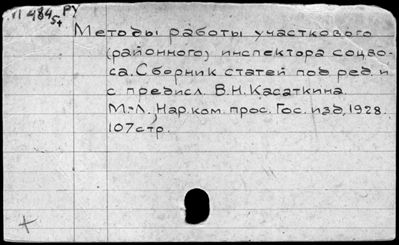 П 484 РУ
54
Методы работы участкового
(районного) инспектора соцво-
са. Сборник статей под ред. и
с предисл. В.Н. Касаткина.
М.-Л., Нар. ком. прос. Гос. изд, 1928.
107стр.